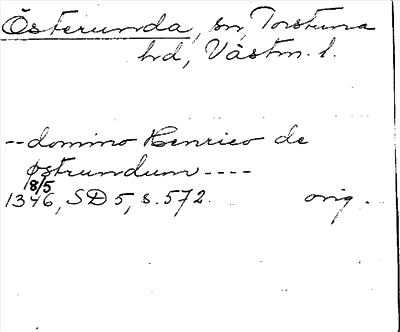 Österunda, sn, Torstuna
hd, Västm. l.
-- domino Henrico de
østrundum ----
18/5
1346, SD 5, s. 572. orig.